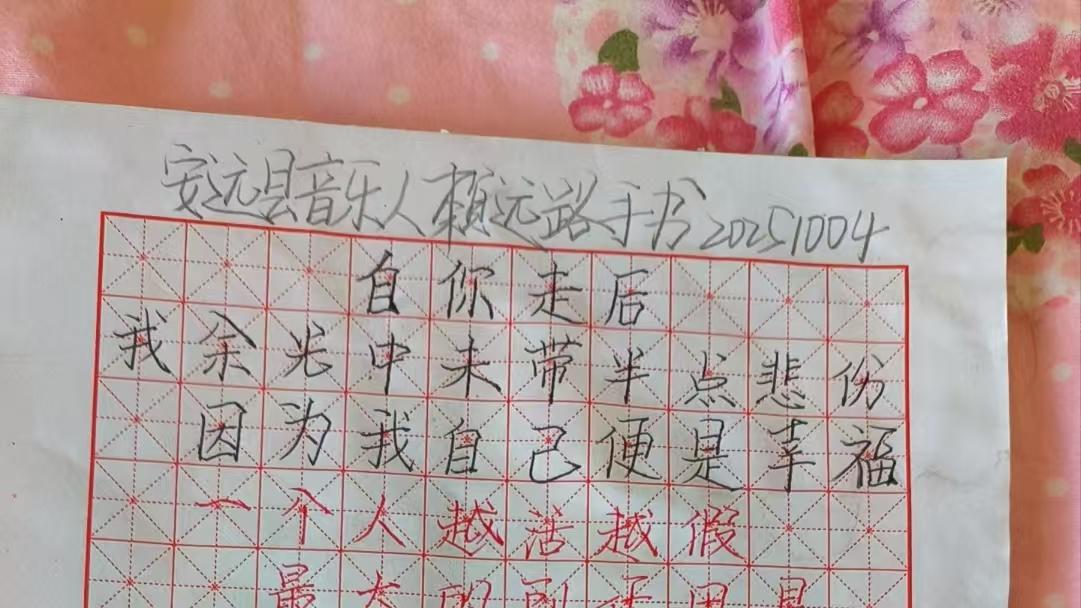 安远县音乐人赖远路手书20251004
自你走后
我余光中未带半点悲伤
因为我自己便是幸福
一个人越活越假
最大的